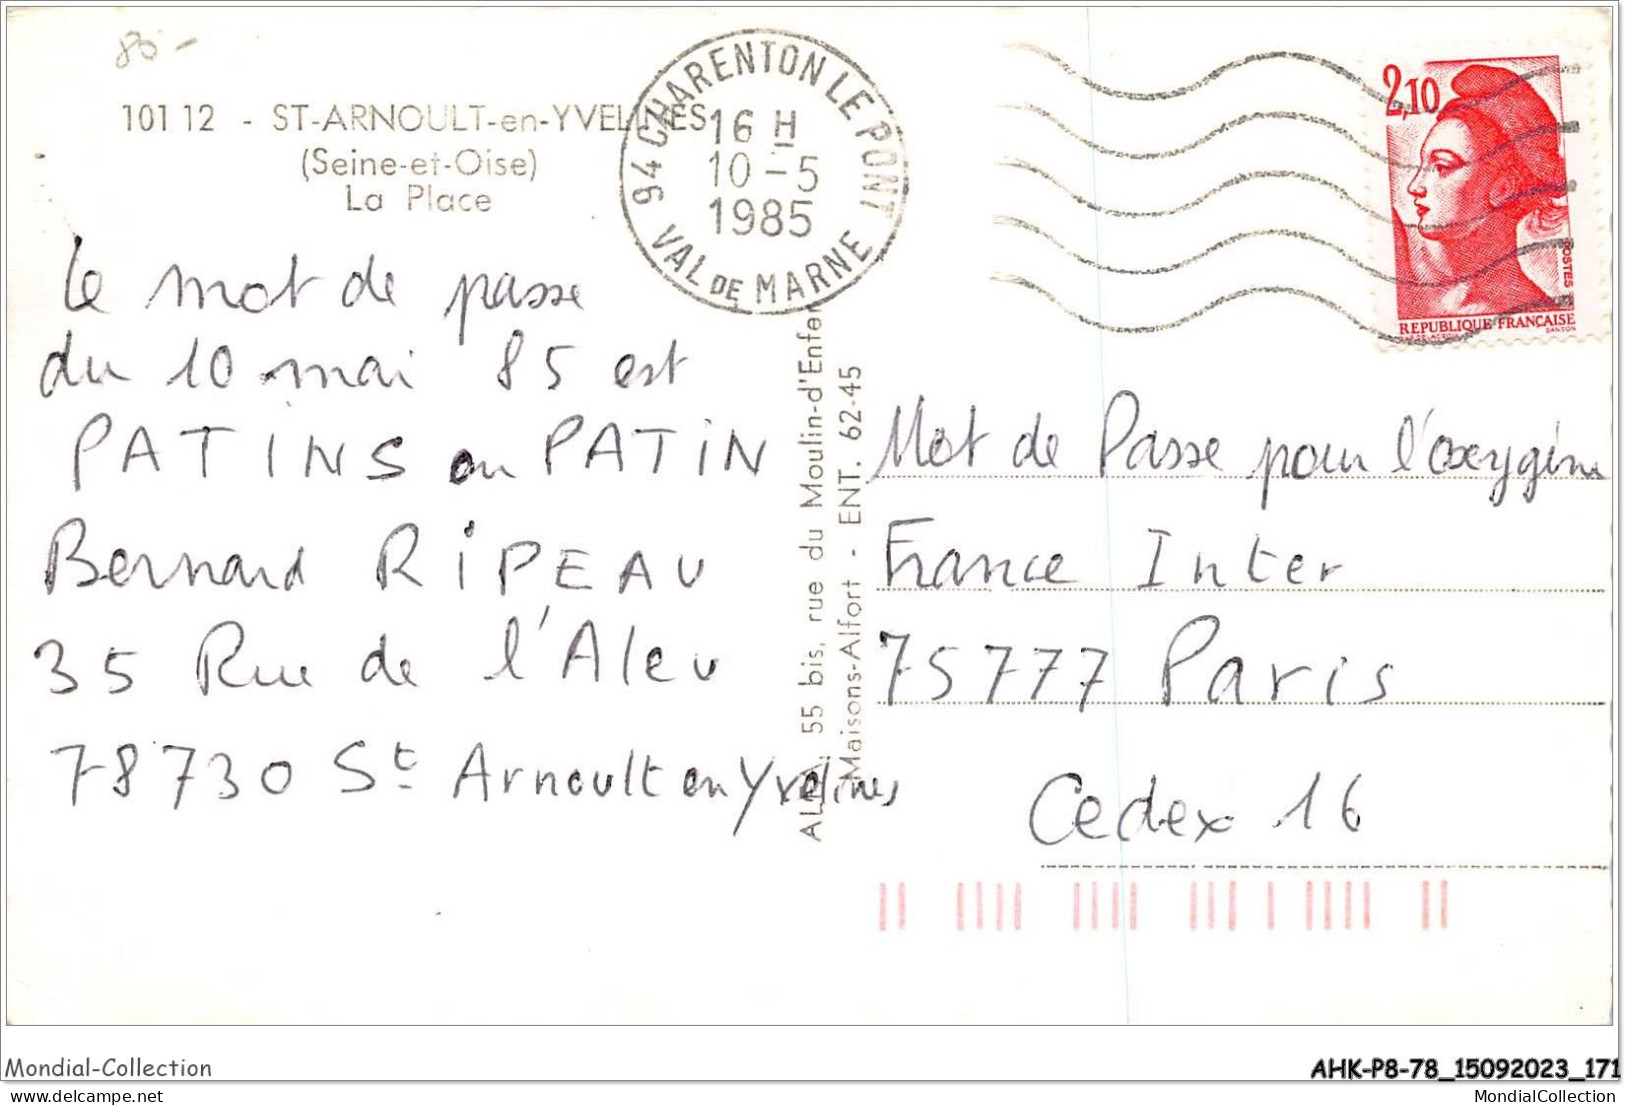 80 -
101 12 - ST-ARNOULT-en-YVELINES
(Seine-et-Oise)
La Place
94 CHARENTON LE PONT
16 H
10 - 5
1985
VAL DE MARNE
2,10
POSTES
REPUBLIQUE FRANÇAISE
Le mot de passe
du 10 mai 85 est
PATINS ou PATiN
Bernard RiPEAU
35 Rue de l'Aleu
78730 St Arnoult en Yvelines
55 bis, rue du Moulin-d'Enfer
Maisons-Alfort - ENT. 62-45
Mot de Passe pour l'oxygène
France Inter
75777 Paris
Cedex 16
Mondial-Collection
AHK-P8-78_15092023_171
MondialCollection